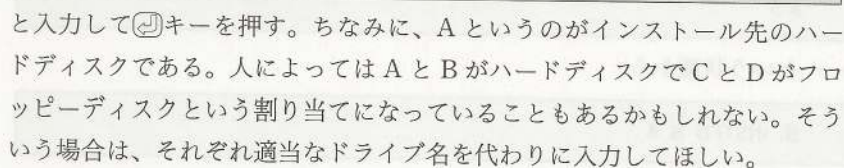 と入力して⏎キーを押す。ちなみに、Aというのがインストール先のハー
ドディスクである。人によってはAとBがハードディスクでCとDがフロ
ッピーディスクという割り当てになっていることもあるかもしれない。そう
いう場合は、それぞれ適当なドライブ名を代わりに入力してほしい。